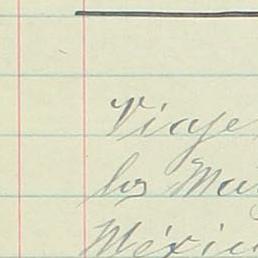 Viaje
los Ma
Méxic